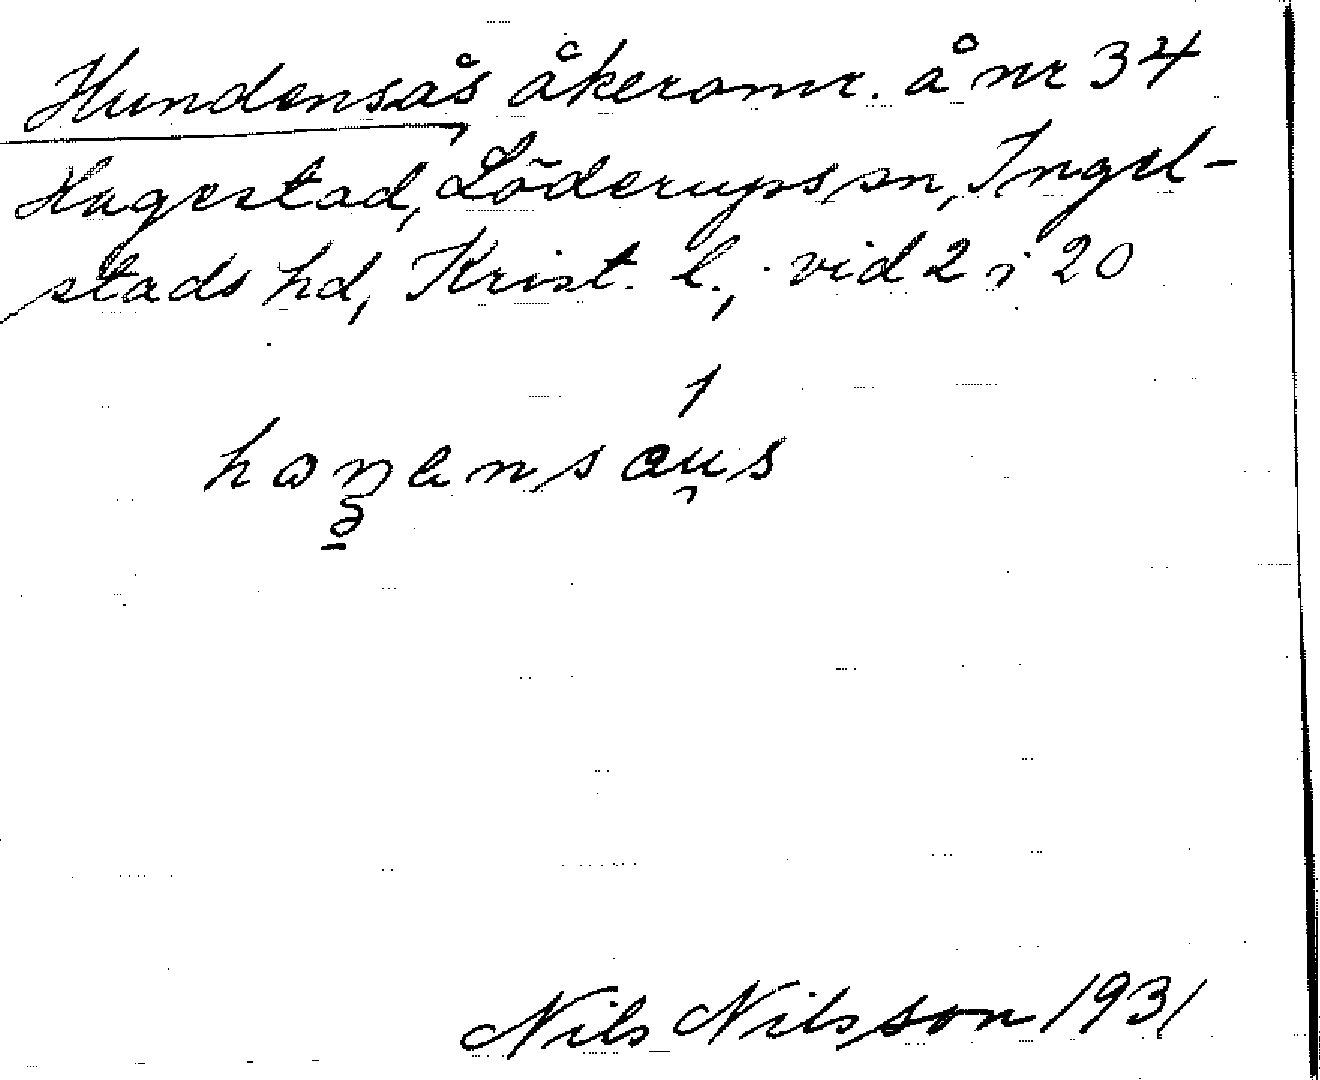 Hundensås åkeromr. å nr 34
Hagestad, Löderups sn, Ingel-
stads hd, Krist. l., vid 2 i 20
Nils Nilsson 1931